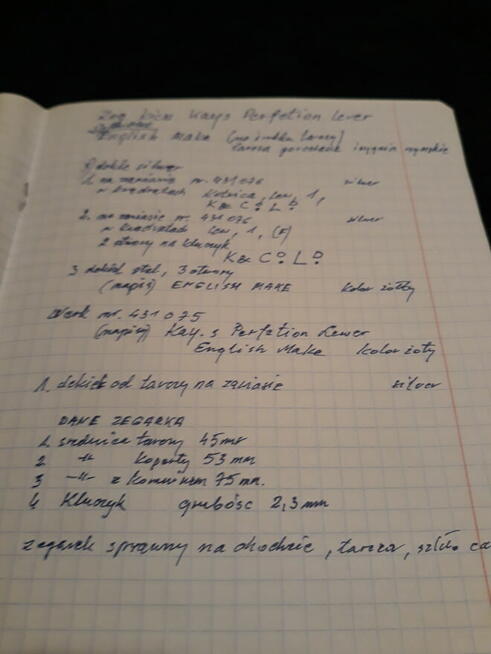 Zeg. kiesz Kays Perfetion Lever
English Make (na środku tarczy)
tarcza porcelana inżynia rzymskie
1. na zawiasie nr. 431076 silver
w kwadratach Kotwica, Lew, 1,
K& C° L D
2. na zawiasie nr. 431076 silver
w kwadratach Lew, 1, (F)
2 otwory na kluczyk
K& C° L D
3 dekiel stal, 3 otwory
(napis) ENGLISH MAKE kolor żółty
Werk nr. 431075
(napis) Kay.s Perfetion Lewer
English Make kolor żoty
1. dekiel od tarczy na zawiasie silver
DANE ZEGARKA
1. srednica tarczy 45mm
2 -"- koperty 53 mm
3 -"- z kominkiem 75 mm.
4 Kluczyk grubośc 2,3 mm
zegarek sprawny na chodzie, tarcza, szkło ca